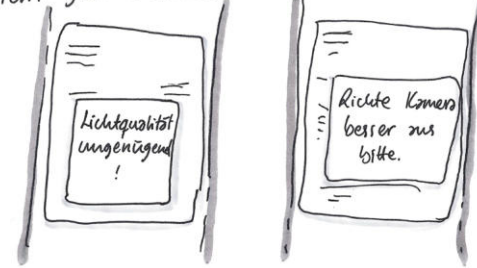 Lichtqualität
ungenügend
!
Richte Kamera
besser aus
bitte.